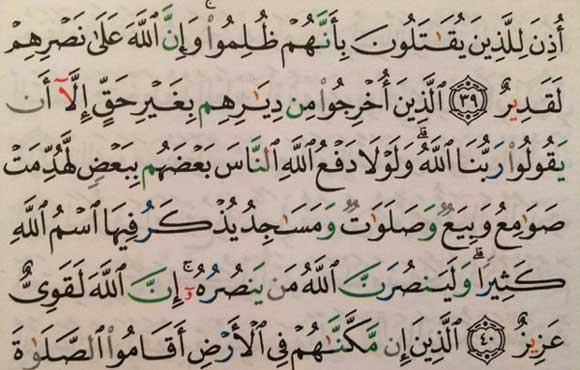 أُذِنَ لِلَّذِينَ يُقَـٰتَلُونَ بِأَنَّهُمْ ظُلِمُوا۟ ۚ وَإِنَّ ٱللَّهَ عَلَىٰ نَصْرِهِمْ
لَقَدِيرٌ ﴿٣٩﴾ ٱلَّذِينَ أُخْرِجُوا۟ مِن دِيَـٰرِهِم بِغَيْرِ حَقٍّ إِلَّآ أَن
يَقُولُوا۟ رَبُّنَا ٱللَّهُ ۗ وَلَوْلَا دَفْعُ ٱللَّهِ ٱلنَّاسَ بَعْضَهُم بِبَعْضٍ لَّهُدِّمَتْ
صَوَٰمِعُ وَبِيَعٌ وَصَلَوَٰتٌ وَمَسَـٰجِدُ يُذْكَرُ فِيهَا ٱسْمُ ٱللَّهِ
كَثِيرًا ۗ وَلَيَنصُرَنَّ ٱللَّهُ مَن يَنصُرُهُۥٓ ۚ إِنَّ ٱللَّهَ لَقَوِىٌّ
عَزِيزٌ ﴿٤٠﴾ ٱلَّذِينَ إِن مَّكَّنَّـٰهُمْ فِى ٱلْأَرْضِ أَقَامُوا۟ ٱلصَّلَوٰةَ